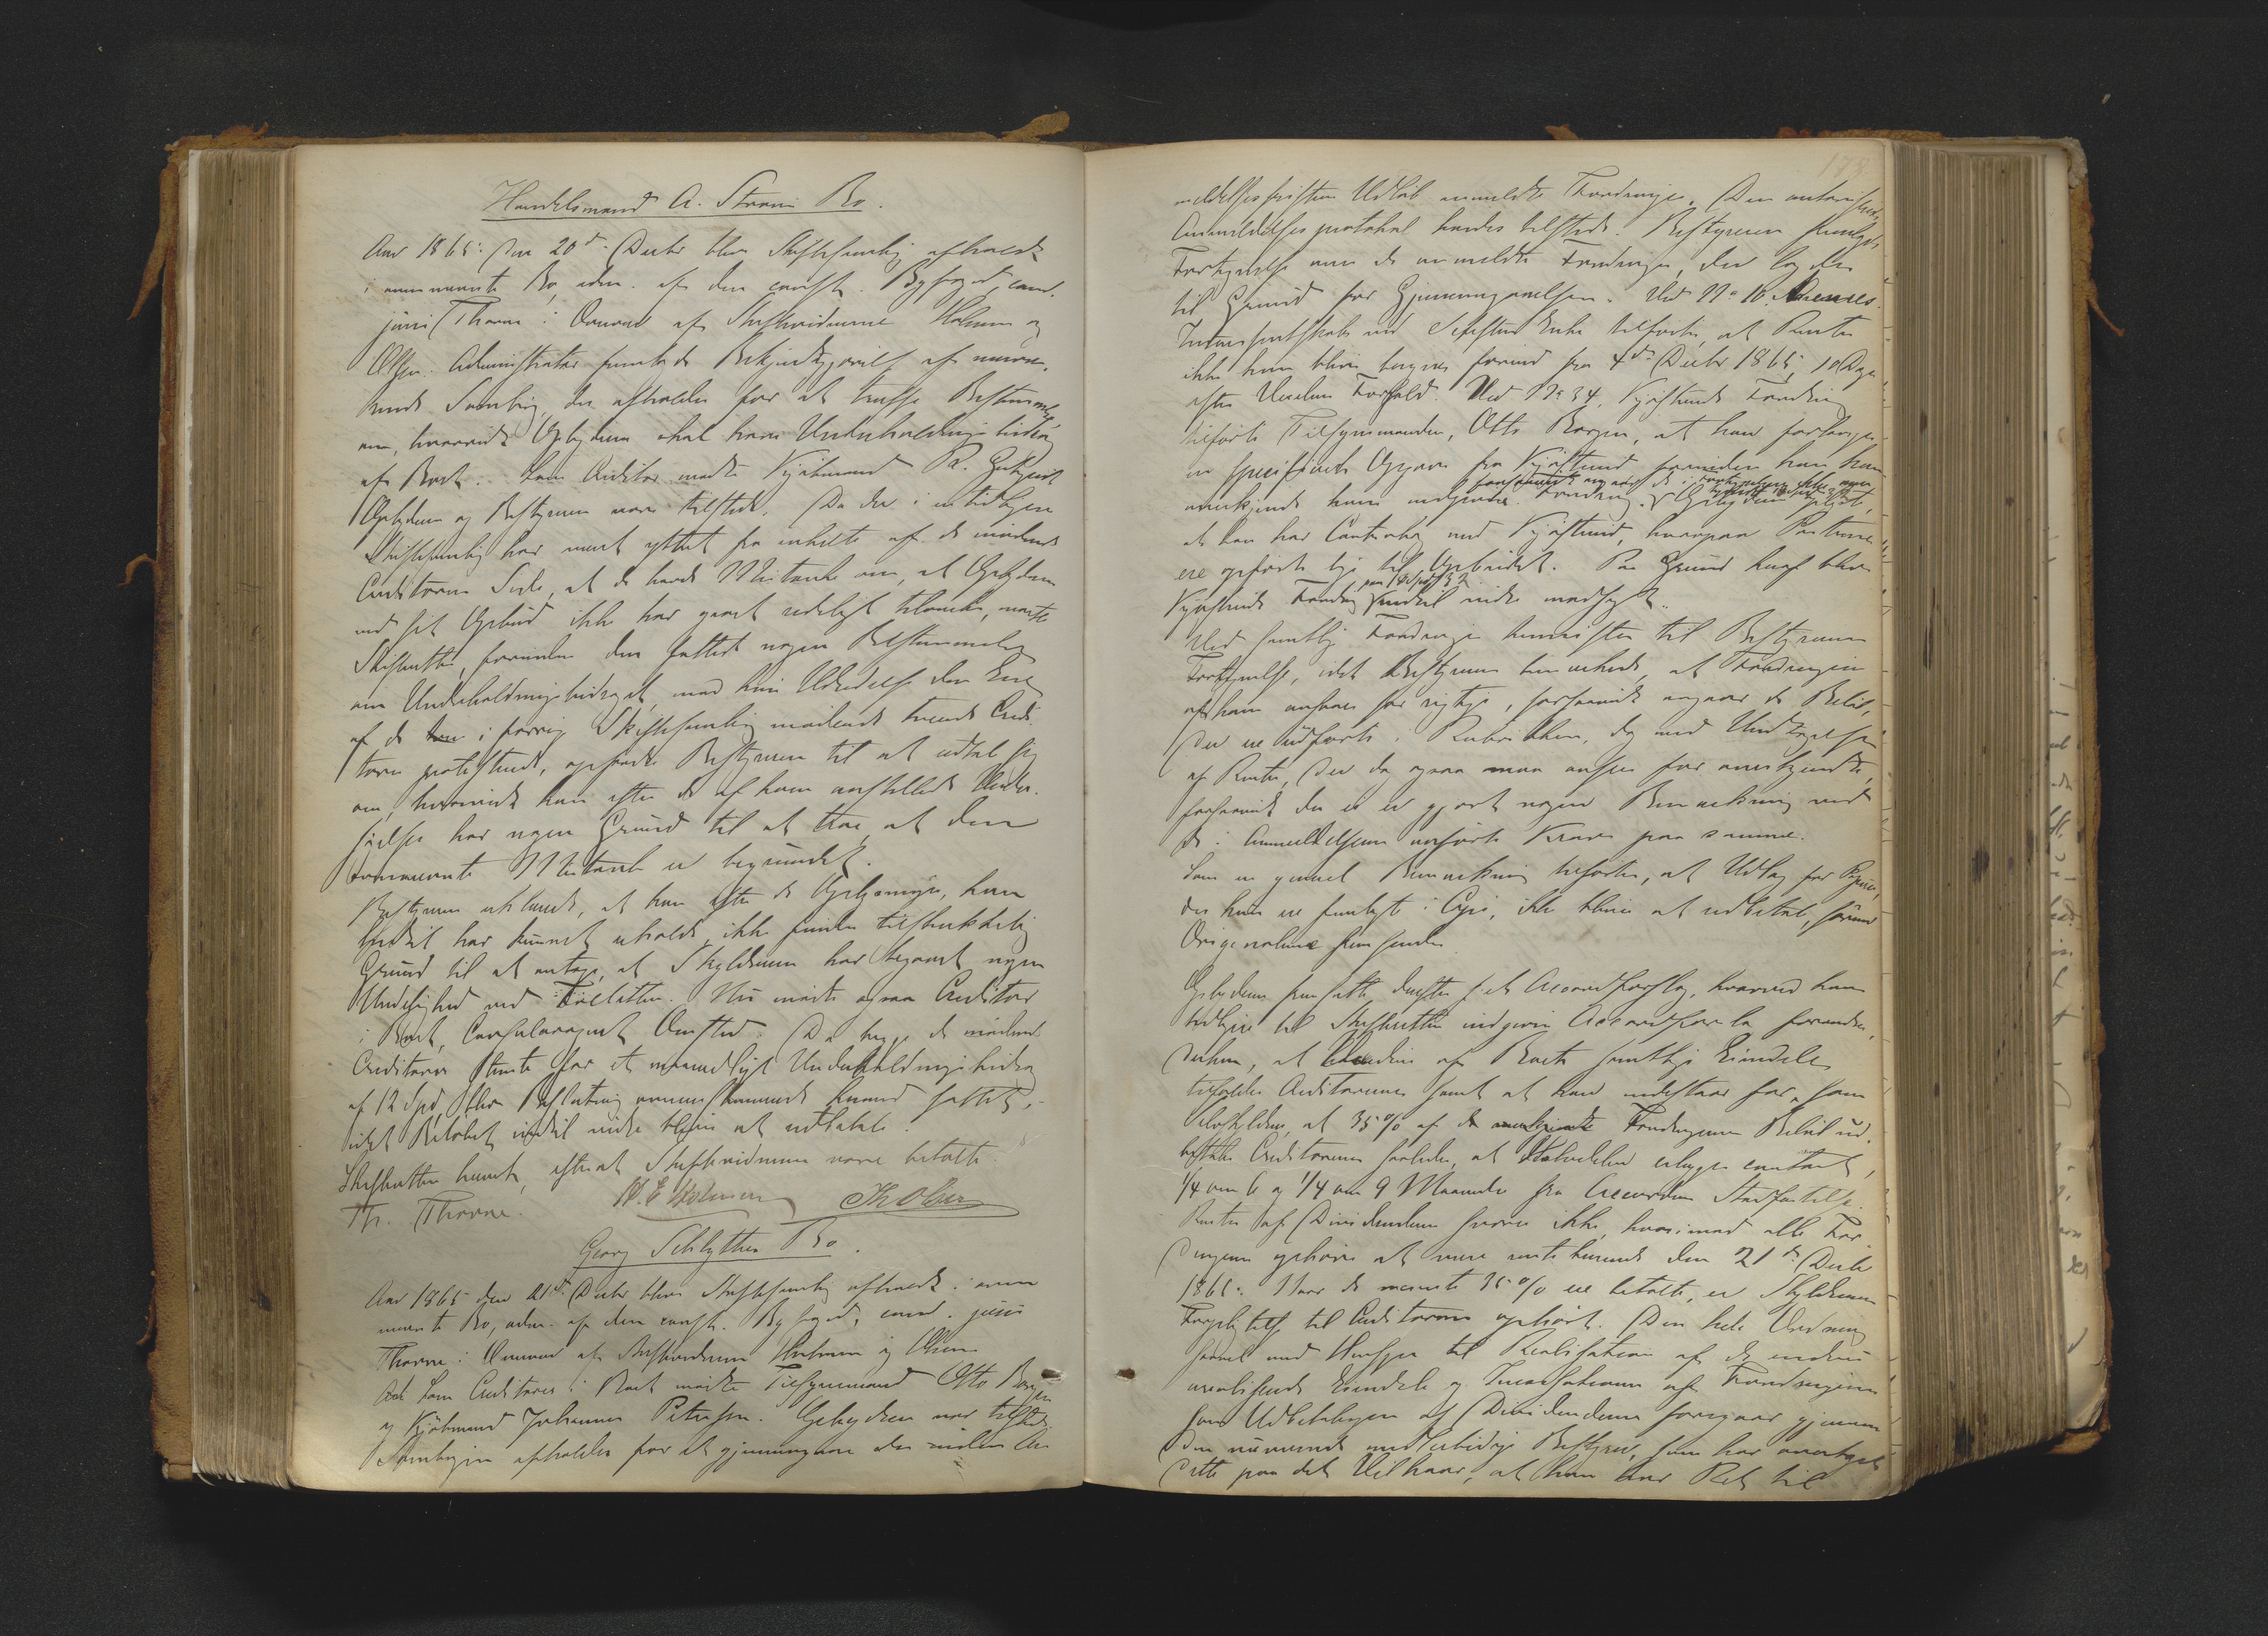 Handelsmand A. Strøms Bo.
Aar 1865 den 20de Decbr blev Skiftesamling afholdt
i ovennævnte Bo, adm. af den const. Byfoged, cand.
juris Thorne i Overvær af Skiftevidnerne Holmen og
Olsen. Administrator fremlagde Bekjendtgjørelse af nærvæ-
rende Samling, der afholdes for at træffe Bestemmelse
om, hvorvidt Opbyderen skal have Underholdningsbidrag
af Boet. Som Creditor mødte Kjøbmand
Opbyderen og Bestyreren vare tilstede. Da der i en tidligere
Skiftesamling har været yttret fra enkelte af de mødende
Creditorers Side, at de havde Mistanke om, at Opbyderen
ved sit Opbud ikke har gaaet redeligt tilværks, maatte
Skifteretten, forinden den fattede nogen Bestemmelse
om Underholdningsbidraget, med
af de i forrige Skiftesamling mødende Credi-
torer protesterede, opfordre Bestyreren til at udtale sig
om, hvorvidt han efter de af ham anstillede Under-
søgelser har nogen Grund til at troe, at den
fornævnte Mistanke er begrundet.
Bestyreren erklærede, at han efter de Oplysninger, han
hidtil har kunnet erholde, ikke finder tilstrækkelig
Grund til at antage, at Skyldneren har begaaet nogen
Uredelighed ved Falliten. Nu mødte ogsaa Creditor
i Boet, Consularagent Omsted. Da begge de mødende
Creditorer stemte for et maanedligt Underholdningsbidrag
af 12 Spd, blev Beslutning overensstemmende hermed fattet,
idet Beløbet indtil videre bliver at udbetale.
Skifteretten hævet, efterat Skiftevidnerne vare betalte.
Th. Thorne. H. E. Holmen Th Olsen
Georg Schlytters Bo.
Aar 1865 den 21de Decbr blev Skiftesamling afholdt i oven-
nævnte Bo, adm. af den const. Byfoged, cand. juris
Thorne i Overvær af Skiftevidnerne Holmen og Olsen
Som Creditorer i Boet mødte Tilsynsmand Otto Borgen
og Kjøbmand Johannes Petersen. Opbyderen var tilstede.
Samlingen afholdes for at gjennemgaae de inden An-
178
meldelsesfristens Udløb anmeldte Fordringer. Den autoriserede
Anmeldelsesprotokol havdes tilstede. Bestyreren fremlagde
Fortegnelse over de anmeldte Fordringer, der lagdes
til Grund for Gjennemgaaelsen. Ved No 10.
Interessentskab ved tilføies, at Renter
ikke kan blive beregnet forud for 4de Decbr 1865, 10 Dage
efter Forfald. Ved No 34, Kjøstuds Fordring
tilførte Tilsynsmanden, Otto Borgen, at han forlanger
en specificeret Opgave fra Kjøstud forinden han kan
anerkjende hans Fordring. Opbyderen
at han har Contrabog med Kjøstud, hvorpaa Posterne
ere opførte lige til Opbudet. Paa Grund heraf blev
Kjøstuds Fordring indtil videre modsagt.
Ved samtlige Fordringer henvistes til Bestyrerens
Fortegnelse, idet Bestyreren bemærkede, at Fordringerne
af ham ansaaes for rigtige, forsaavidt angaaer de Beløb,
der ere udførte i Rubrikken, dog med Undtagelse
af Renter, der dog ogsaa maa ansees for anerkjendte,
forsaavidt der ei er gjort nogen Bemærkning ved
de i Anmeldelserne anførte Krav paa samme.
Som en generel Bemærkning tilføies, at Udlæg for
der kun ere fremlagte i Copi, ikke bliver at udbetale, førend
Originalerne fremsendes
Opbyderen fremsatte derefter sit Accordforslag, hvorved han
tidligere til Skifteretten indgivne Accordforslag forandres
derhen, at af Boets samtlige Eiendele
tilfalder Creditorerne samt at han indestaar for, som
Selvskyldner, at 35% af de anerkjendte Fordringers Beløb ud-
betales Creditorerne saaledes, at Halvdelen erlægges contant,
1/4 om 6 og 1/4 om 9 Maaneder fra Accordens Stadfæstelse.
Renter af Dividenden svares ikke, hvorimod alle For-
dringerne ophøre at være rentebærende den 21de Decbr
1865. Naar de nævnte 35% ere betalte, er Skyldnerens
Forpligtelse til Creditorerne ophørt. Den hele Ordning
saavel med Hensyn til Realisation af de endnu
urealiserede Eiendele og Incassationen af Fordringerne
som Udbetalingen af Dividenderne foregaar gjennem
den nuværende midlertidige Bestyrer, som har overtaget
dette paa det Vilkaar, at han har Ret til